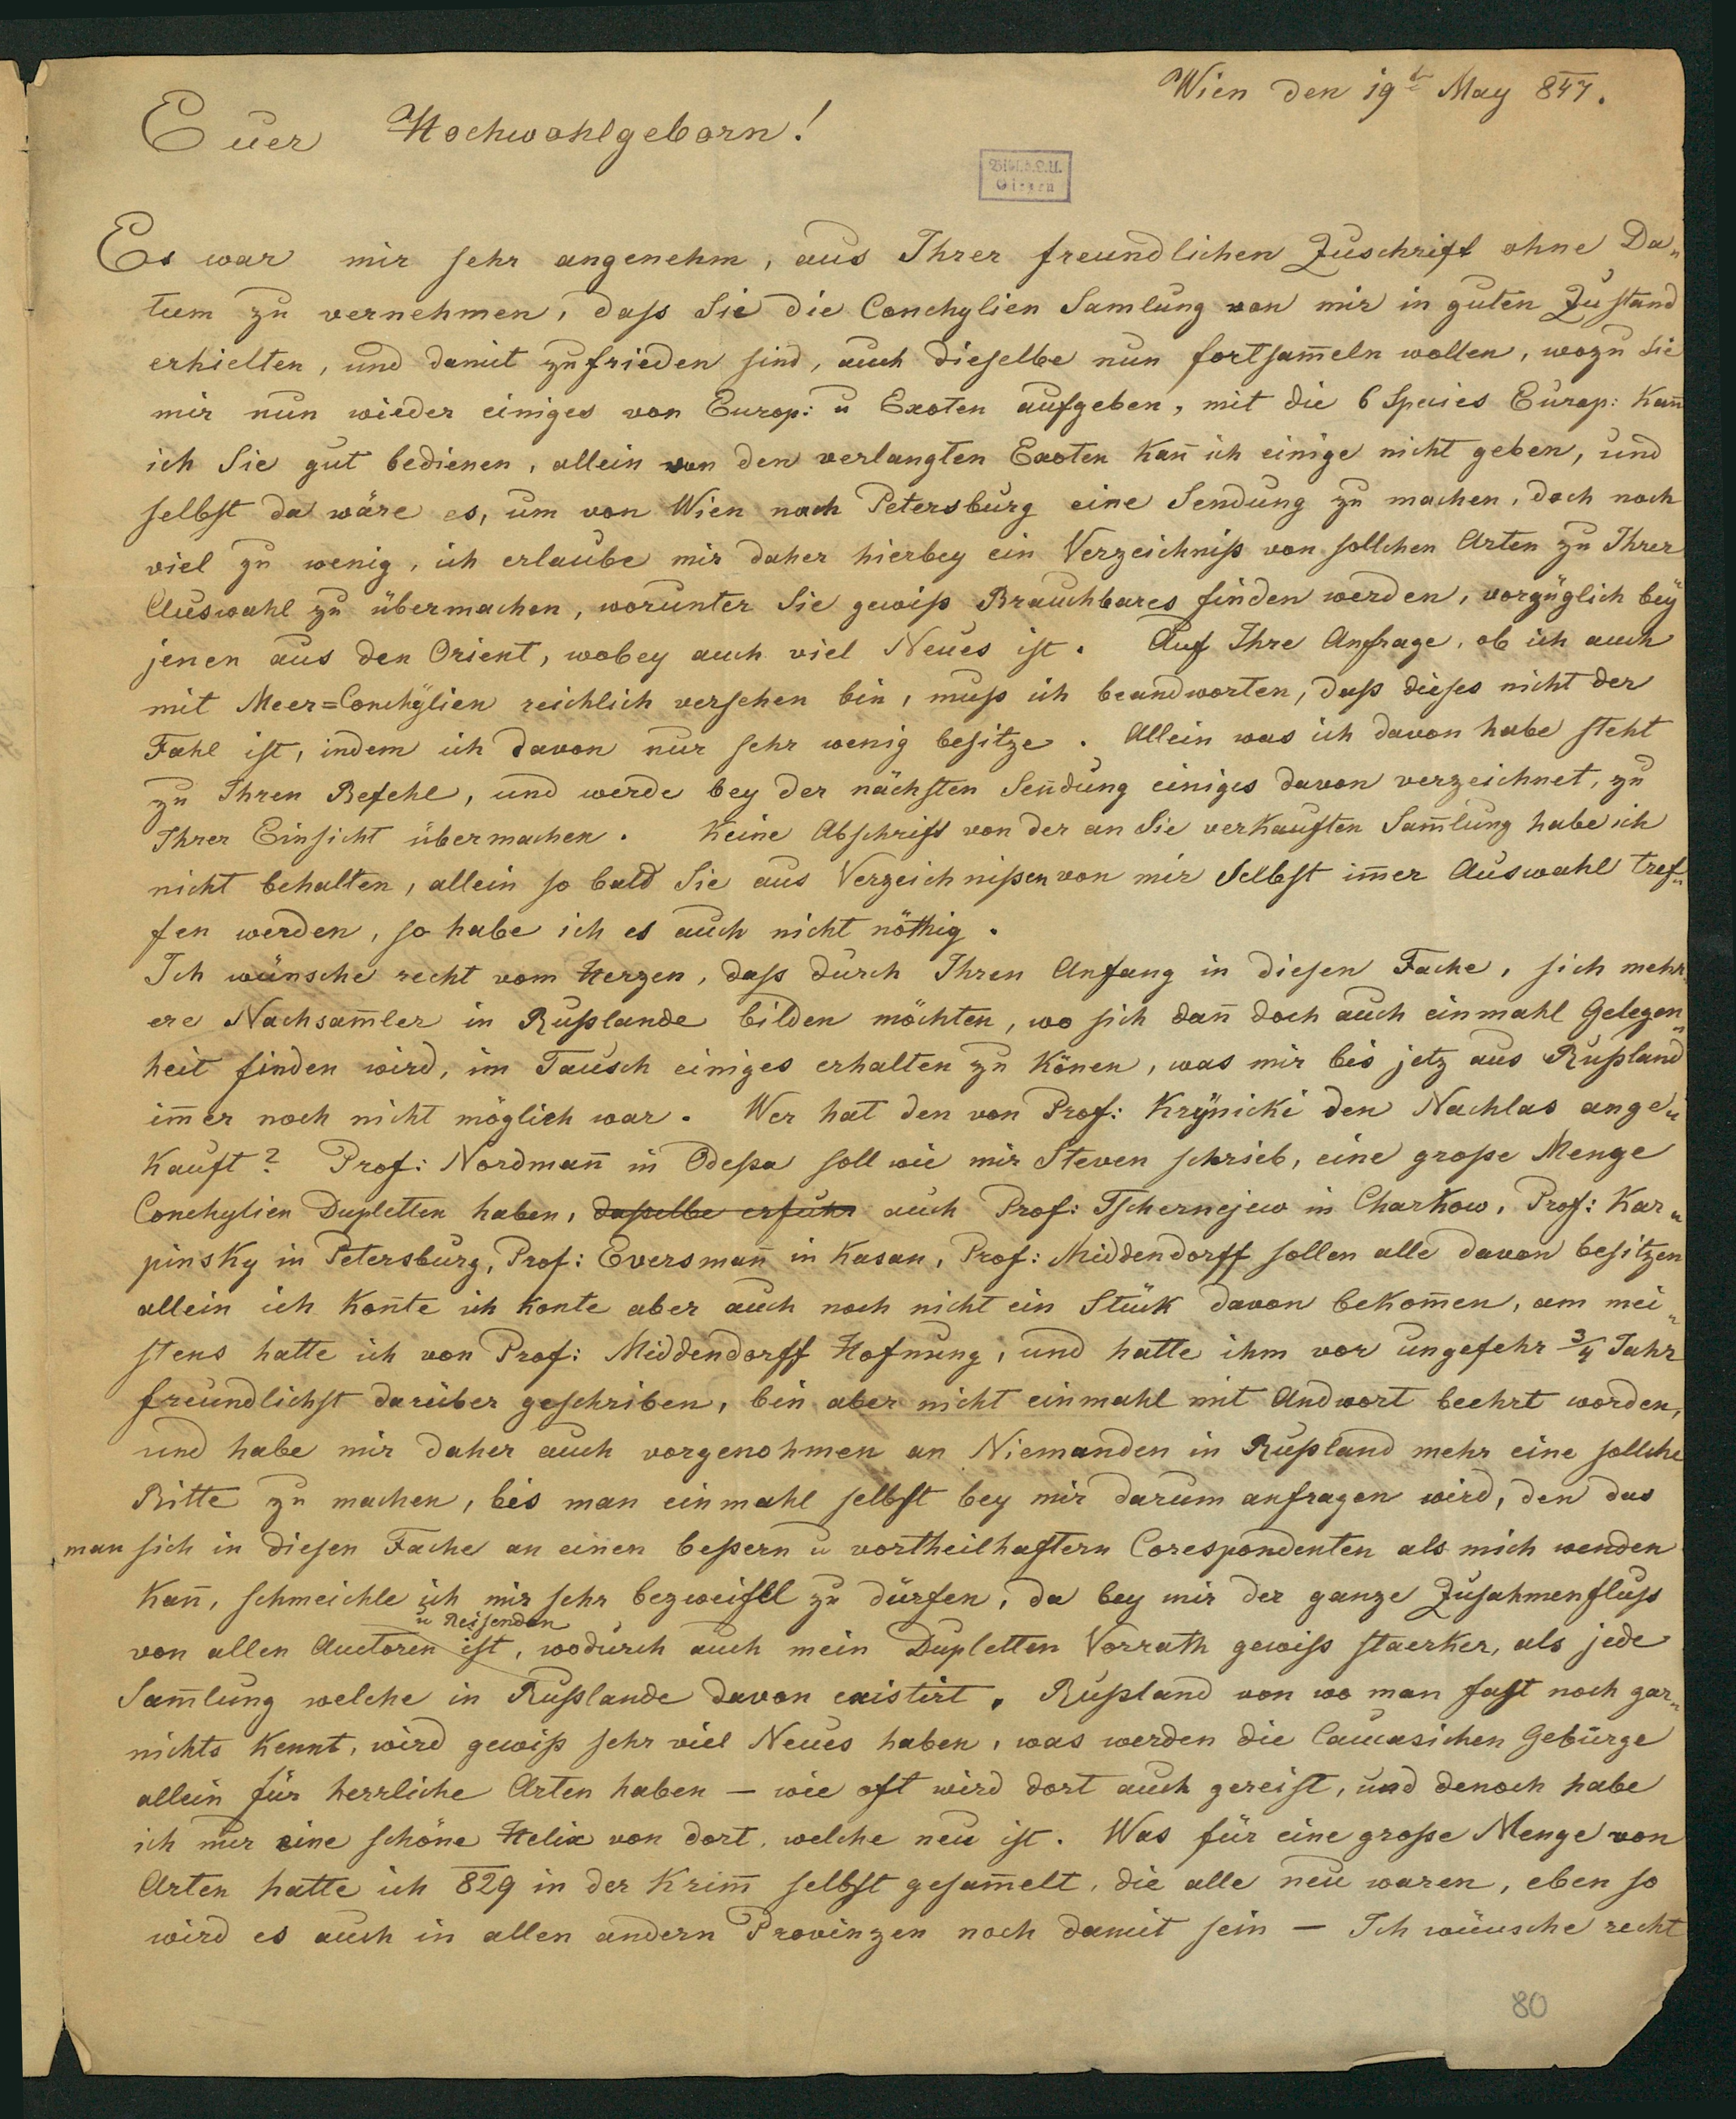 Wien den 19t May 847.
Euer Hochwohlgeborn!
Bibl. d. L. U.
Giezen
Es war mir sehr angenehm, aus Ihrer freundlichen Zuschrift ohne Da„
tum zu vernehmen, daß Sie die Conchylien Samlung von mir in guten Zustand
erhielten, und damit zufrieden sind, auch dieselbe nun fortsam̅eln wollen, wozu Sie
mir nun wieder einiges von Europ: u Exoten aufgeben, mit die 6 Species Europ: Kan̅
ich Sie gut bedienen, allein von den verlangten Exoten Kan̅ ich einige nicht geben, und
selbst da wäre es, um von Wien nach Petersburg eine Sendung zu machen, doch noch
viel zu wenig, ich erlaube mir daher hierbey ein Verzeichniß von sollchen Arten zu Ihrer
Auswahl zu übermachen, worunter Sie gewiß Brauchbares finden werden, vorzüglich beÿ
jenen aus den Orient, wobey auch viel Neues ist. Auf Ihre Anfrage, ob ich auch
mit Meer=Conchÿlien reichlich versehen bin, muß ich beandworten, daß dieses nicht der
Fahl ist, indem ich davon nur sehr wenig besitze. Allein was ich davon habe steht
zu Ihren Befehl, und werde bey der nächsten Sen̅dung einiges davon verzeichnet, zu
Ihrer Einsicht übermachen. Keine Abschrift von der an Sie verkauften Sam̅lung habe ich
nicht behalten, allein so bald Sie aus Verzeichnißen von mir Selbst im̅er Auswahl tref„
fen werden, so habe ich es auch nicht nöthig.
Ich wünsche recht vom Herzen, daß durch Ihren Anfang in diesen Fache, sich mehr„
ere Nachsam̅ler in Rußlande bilden möchten, wo sich dan̅ doch auch einmahl Gelegen„
heit finden wird, im Tausch einiges erhalten zu Könen, was mir bis jetz aus Rußland
im̅er noch nicht möglich war. Wer hat den von Prof: Krÿnicki den Nachlas ange„
Kauft? Prof: Nordman̅ in Odeßa soll wie mir Steven schrieb, eine große Menge
Conchylien Dupletten haben, daßelbe erfuhr auch Prof: Tschernejew in CharKow, Prof: Kar„
pinsKy in Petersburg, Prof: Eversman̅ in Kasan, Prof: Middendorff sollen alle davon besitzen
allein ich Kon̅te ich Konte aber auch noch nicht ein Stük davon beKom̅en, am mei„
stens hatte ich von Prof: Middendorff Hofnung, und hatte ihm vor ungefehr 3/4 Jahr
freundlichst darüber geschriben, bin aber nicht einmahl mit Andwort beehrt worden,
und habe mir daher auch vorgenohmen an Niemanden in Rußland mehr eine sollche
Bitte zu machen, bis man einmahl selbst bey mir darum anfragen wird, den das
man sich in diesen Fache an einen beßern u vortheilhaftern Corespondenten als mich wenden
Kan̅, schmeichle ich mir sehr bezweifel zu dürfen, da bey mir der ganze Zusahmenfluß
u Reisenden
von allen Auctoren ist, wodurch auch mein Dupletten Vorrath gewiß staerKer, als jede
Sam̅lung welche in Rußlande davon existirt. Rußland von wo man fast noch gar„
nichts Kennt, wird gewiß sehr viel Neues haben, was werden die Caucasichen Gebürge
allein für herrliche Arten haben — wie oft wird dort auch gereist, und denoch habe
ich nur eine schöne Helix von dort, welche neu ist. Was für eine große Menge von
Arten hatte ich 829 in der Krim̅ selbst gesam̅elt, die alle neu waren, eben so
wird es auch in allen andern Provinzen noch damit sein — Ich wünsche recht
80